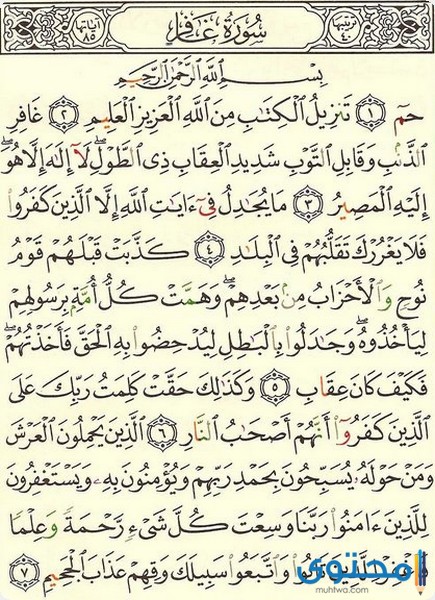 ترتيبها ٤٠ سُورَةُ غَافِر آياتها ٨٥
بِسْمِ ٱللَّهِ ٱلرَّحْمَٰنِ ٱلرَّحِيمِ
حمٓ ١ تَنزِيلُ ٱلْكِتَٰبِ مِنَ ٱللَّهِ ٱلْعَزِيزِ ٱلْعَلِيمِ ٢ غَافِرِ
ٱلذَّنۢبِ وَقَابِلِ ٱلتَّوْبِ شَدِيدِ ٱلْعِقَابِ ذِى ٱلطَّوْلِ ۖ لَآ إِلَٰهَ إِلَّا هُوَ ۖ
إِلَيْهِ ٱلْمَصِيرُ ٣ مَا يُجَٰدِلُ فِىٓ ءَايَٰتِ ٱللَّهِ إِلَّا ٱلَّذِينَ كَفَرُوا۟
فَلَا يَغْرُرْكَ تَقَلُّبُهُمْ فِى ٱلْبِلَٰدِ ٤ كَذَّبَتْ قَبْلَهُمْ قَوْمُ
نُوحٍ وَٱلْأَحْزَابُ مِنۢ بَعْدِهِمْ ۖ وَهَمَّتْ كُلُّ أُمَّةٍۭ بِرَسُولِهِمْ
لِيَأْخُذُوهُ ۖ وَجَٰدَلُوا۟ بِٱلْبَٰطِلِ لِيُدْحِضُوا۟ بِهِ ٱلْحَقَّ فَأَخَذْتُهُمْ ۖ
فَكَيْفَ كَانَ عِقَابِ ٥ وَكَذَٰلِكَ حَقَّتْ كَلِمَتُ رَبِّكَ عَلَى
ٱلَّذِينَ كَفَرُوٓا۟ أَنَّهُمْ أَصْحَٰبُ ٱلنَّارِ ٦ ٱلَّذِينَ يَحْمِلُونَ ٱلْعَرْشَ
وَمَنْ حَوْلَهُۥ يُسَبِّحُونَ بِحَمْدِ رَبِّهِمْ وَيُؤْمِنُونَ بِهِۦ وَيَسْتَغْفِرُونَ
لِلَّذِينَ ءَامَنُوا۟ رَبَّنَا وَسِعْتَ كُلَّ شَىْءٍ رَّحْمَةً وَعِلْمًا
فَٱغْفِرْ لِلَّذِينَ تَابُوا۟ وَٱتَّبَعُوا۟ سَبِيلَكَ وَقِهِمْ عَذَابَ ٱلْجَحِيمِ ٧
محتوى
muhtwa.com